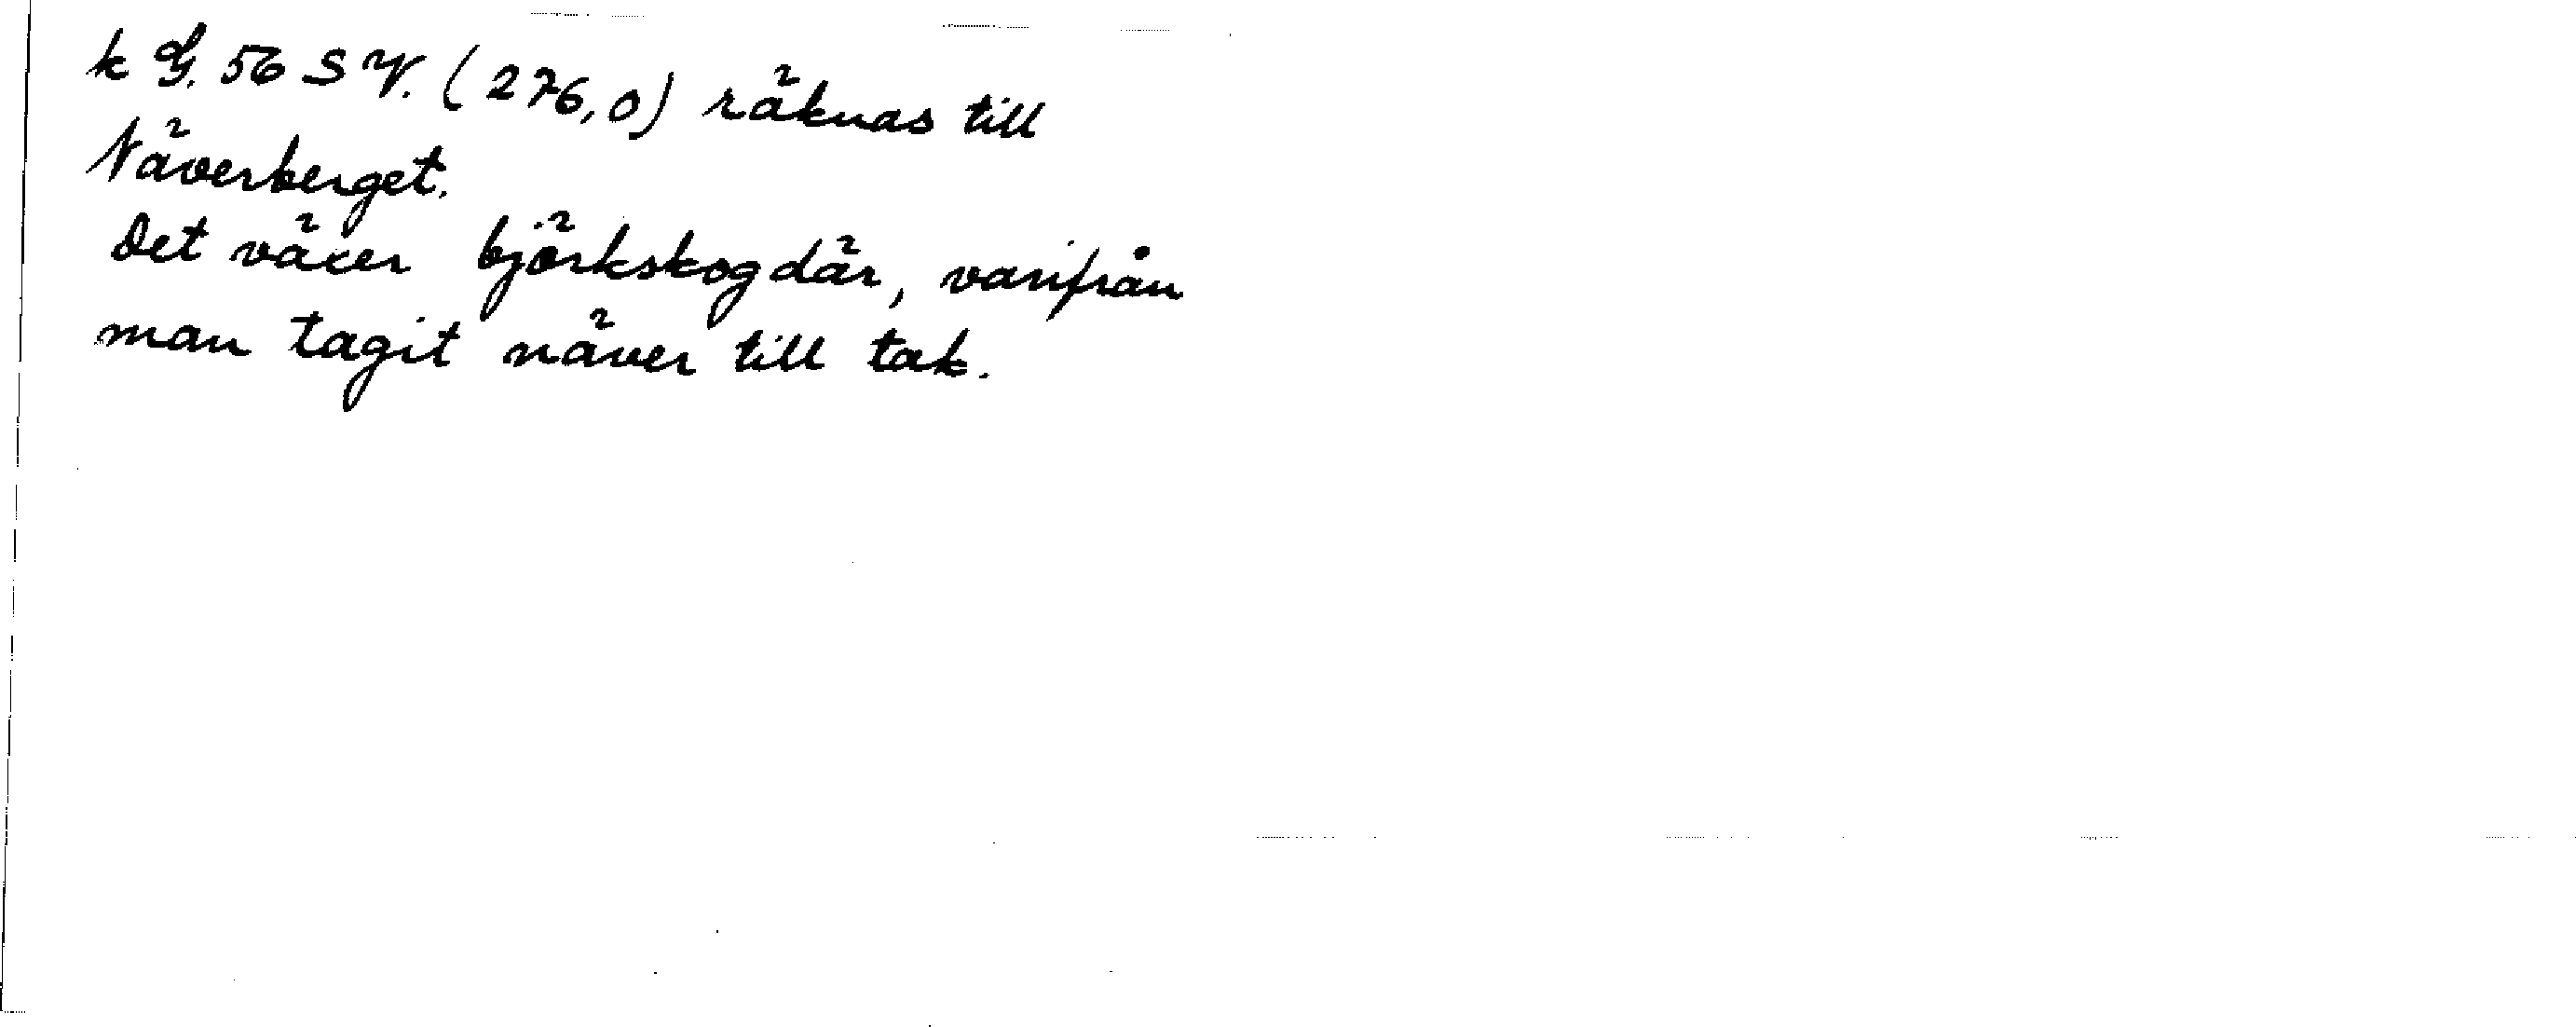 k G. 56 S V. (276,0) räknas till
Näverberget.
Det växer björkskog där, varifrån
man tagit näver till tak.